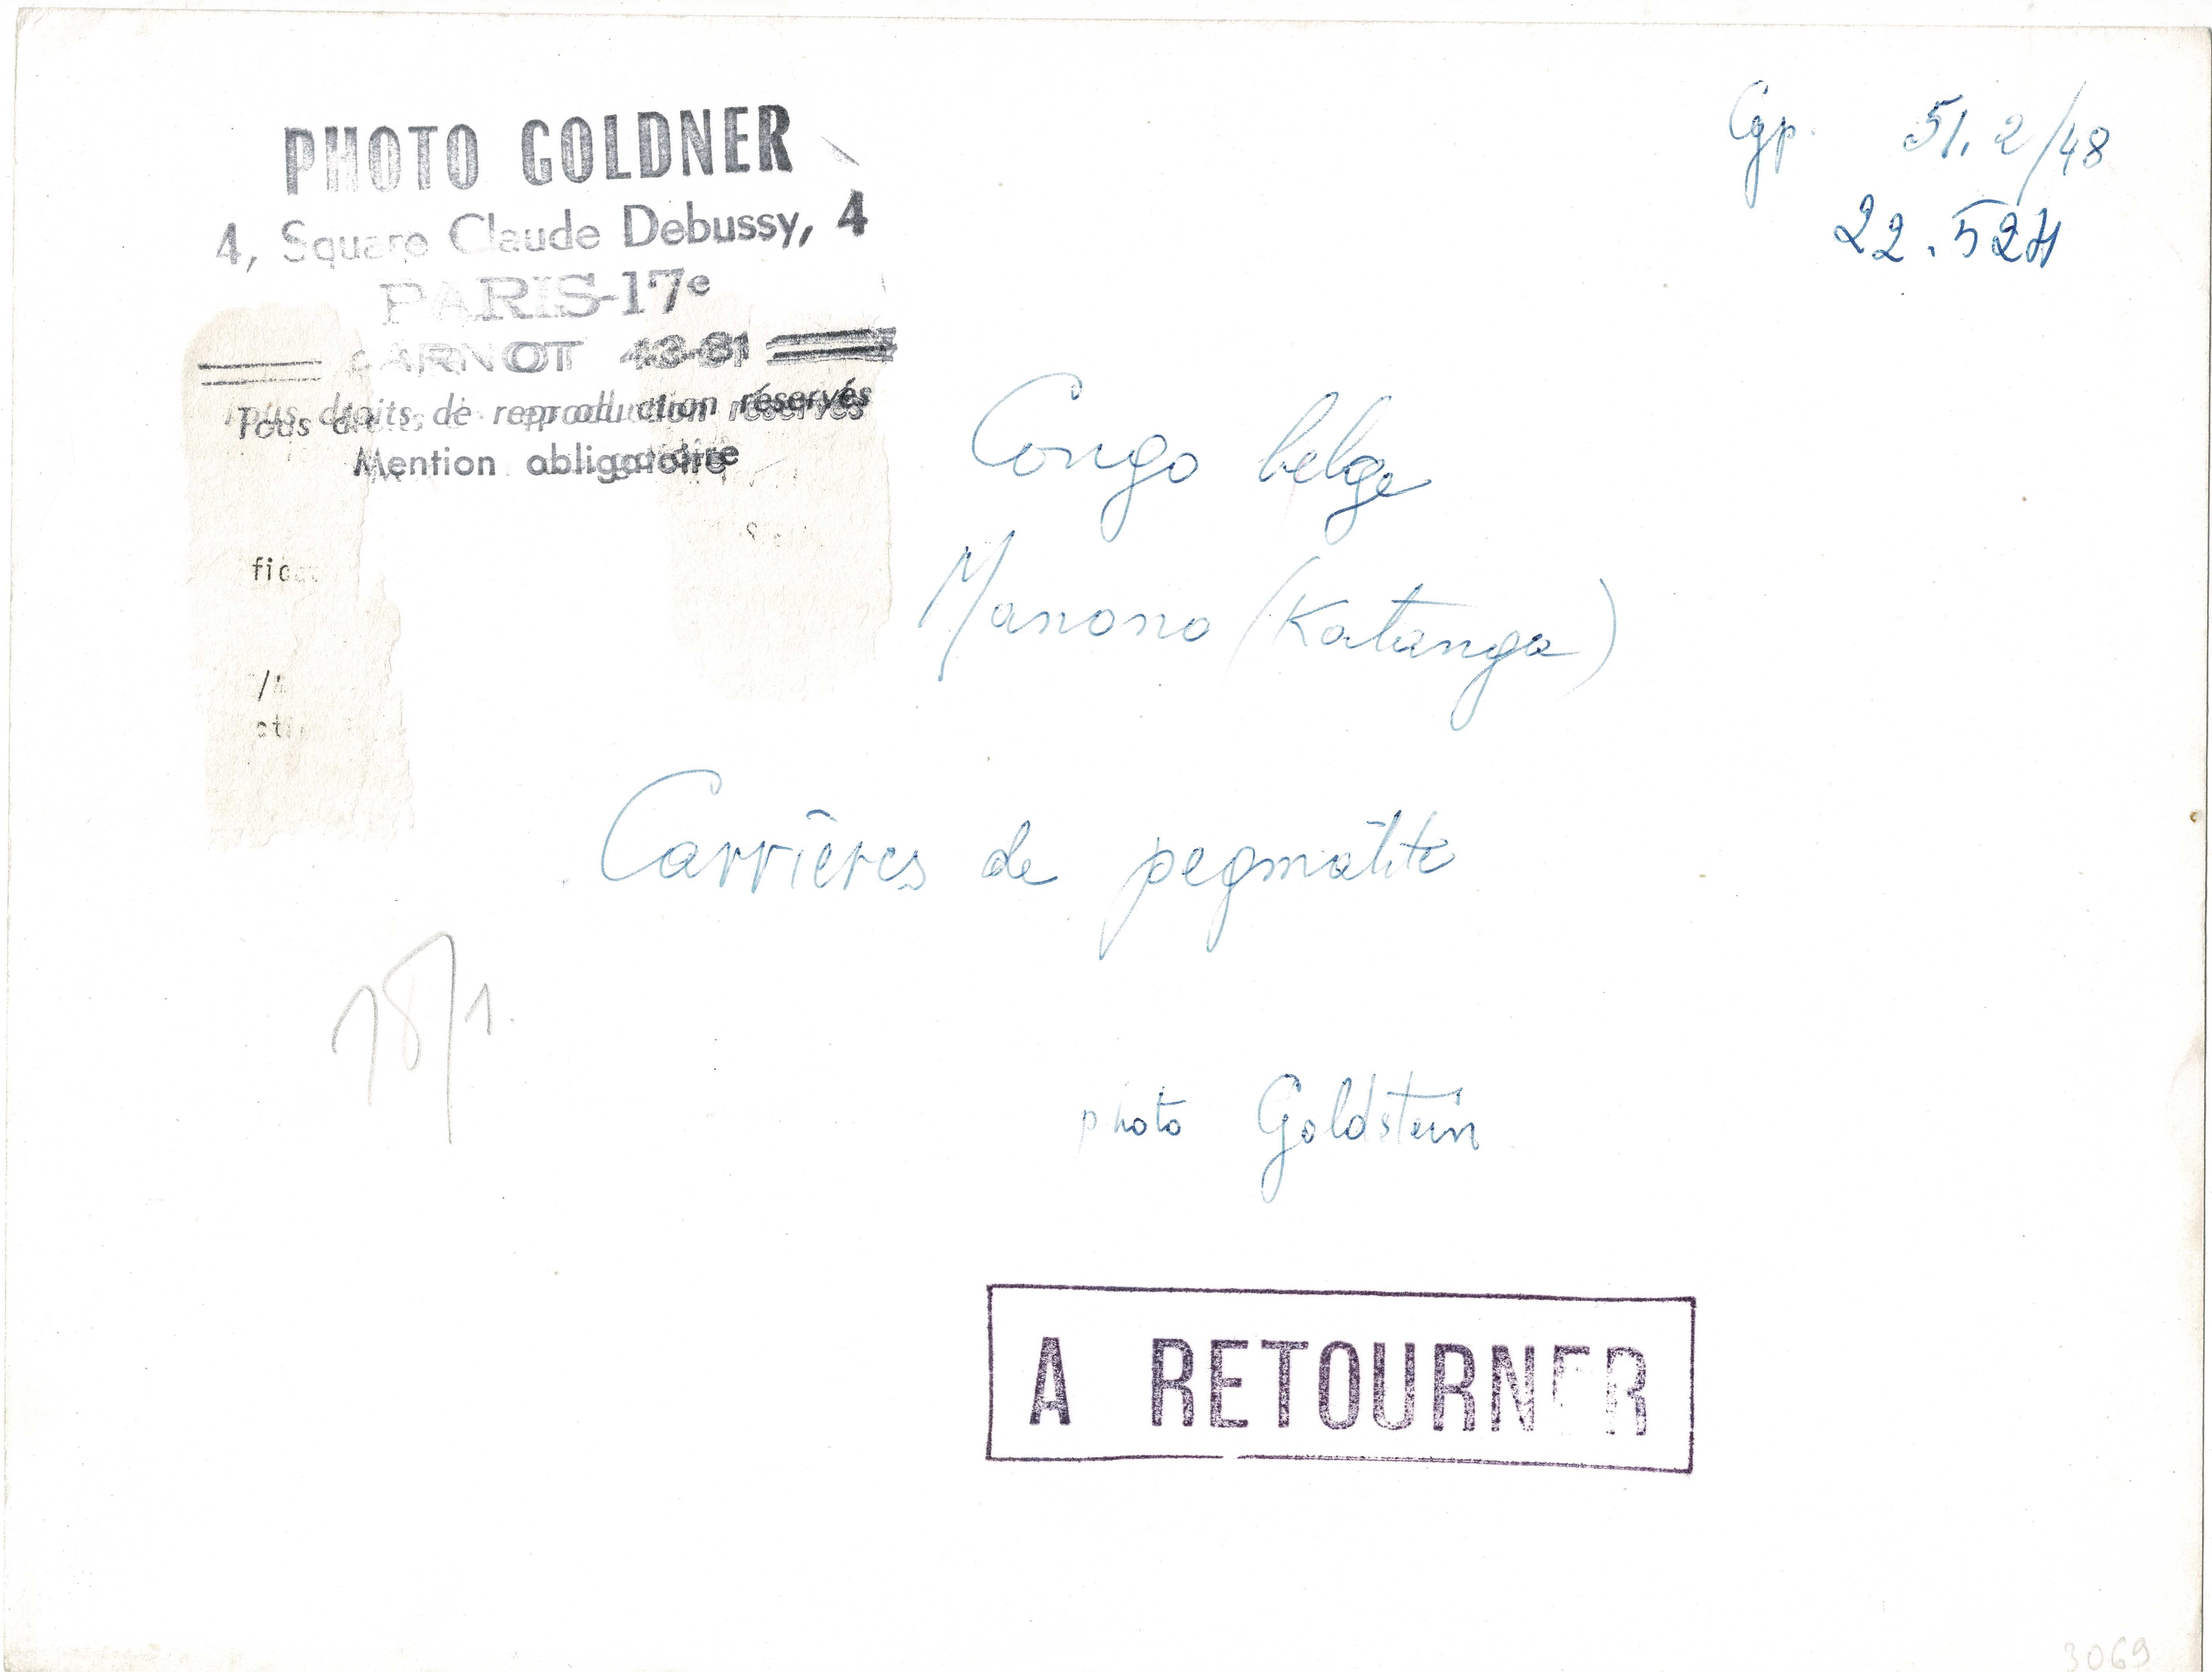 PHOTO GOLDNER
4, Square Claude Debussy, 4
PARIS-17e
CARNOT 43-81
Tous droits de reproduction réservés
Mention obligatoire
Cgp. 51.2/48
22.524
Congo belge
Manono (Katanga)
Carrières de pegmatite
18/1.
photo Goldstein
A RETOURNER
3069